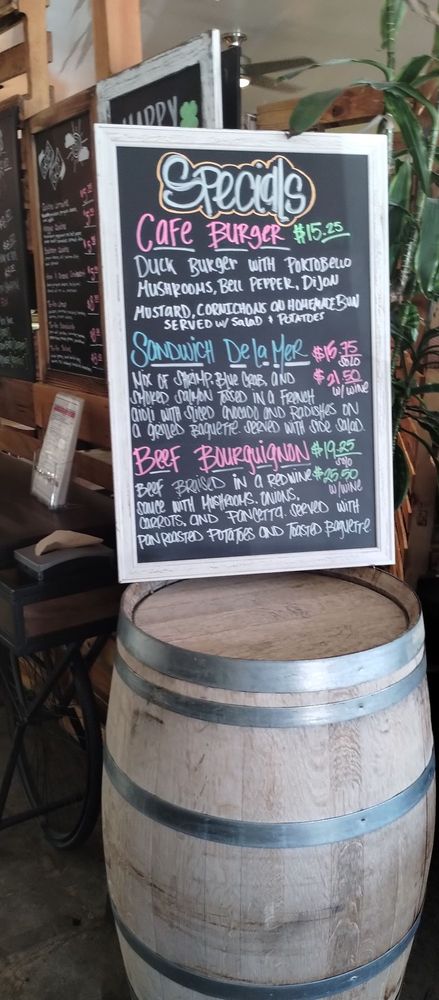 HAPPY
Specials
Cafe Burger $15.25
Duck Burger with Portobello
Mushrooms, Bell Pepper, Dijon
Mustard, Cornichons on Homemade Bun
Served w/ Salad + Potatoes
Sandwich De la Mer $16.75
solo
$21.50
w/ wine
Mix of Shrimp, Blue Crab, and
Smoked Salmon Tossed in a French
Aioli with Sliced Avocado and Radishes on
a Grilled Baguette. Served with Side Salad
Beef Bourguignon $19.25
solo
$25.50
w/ wine
Beef Braised in a Red Wine
Sauce with Mushrooms, Onions,
Carrots, and Pancetta. Served with
Pan Roasted Potatoes and Toasted Baguette